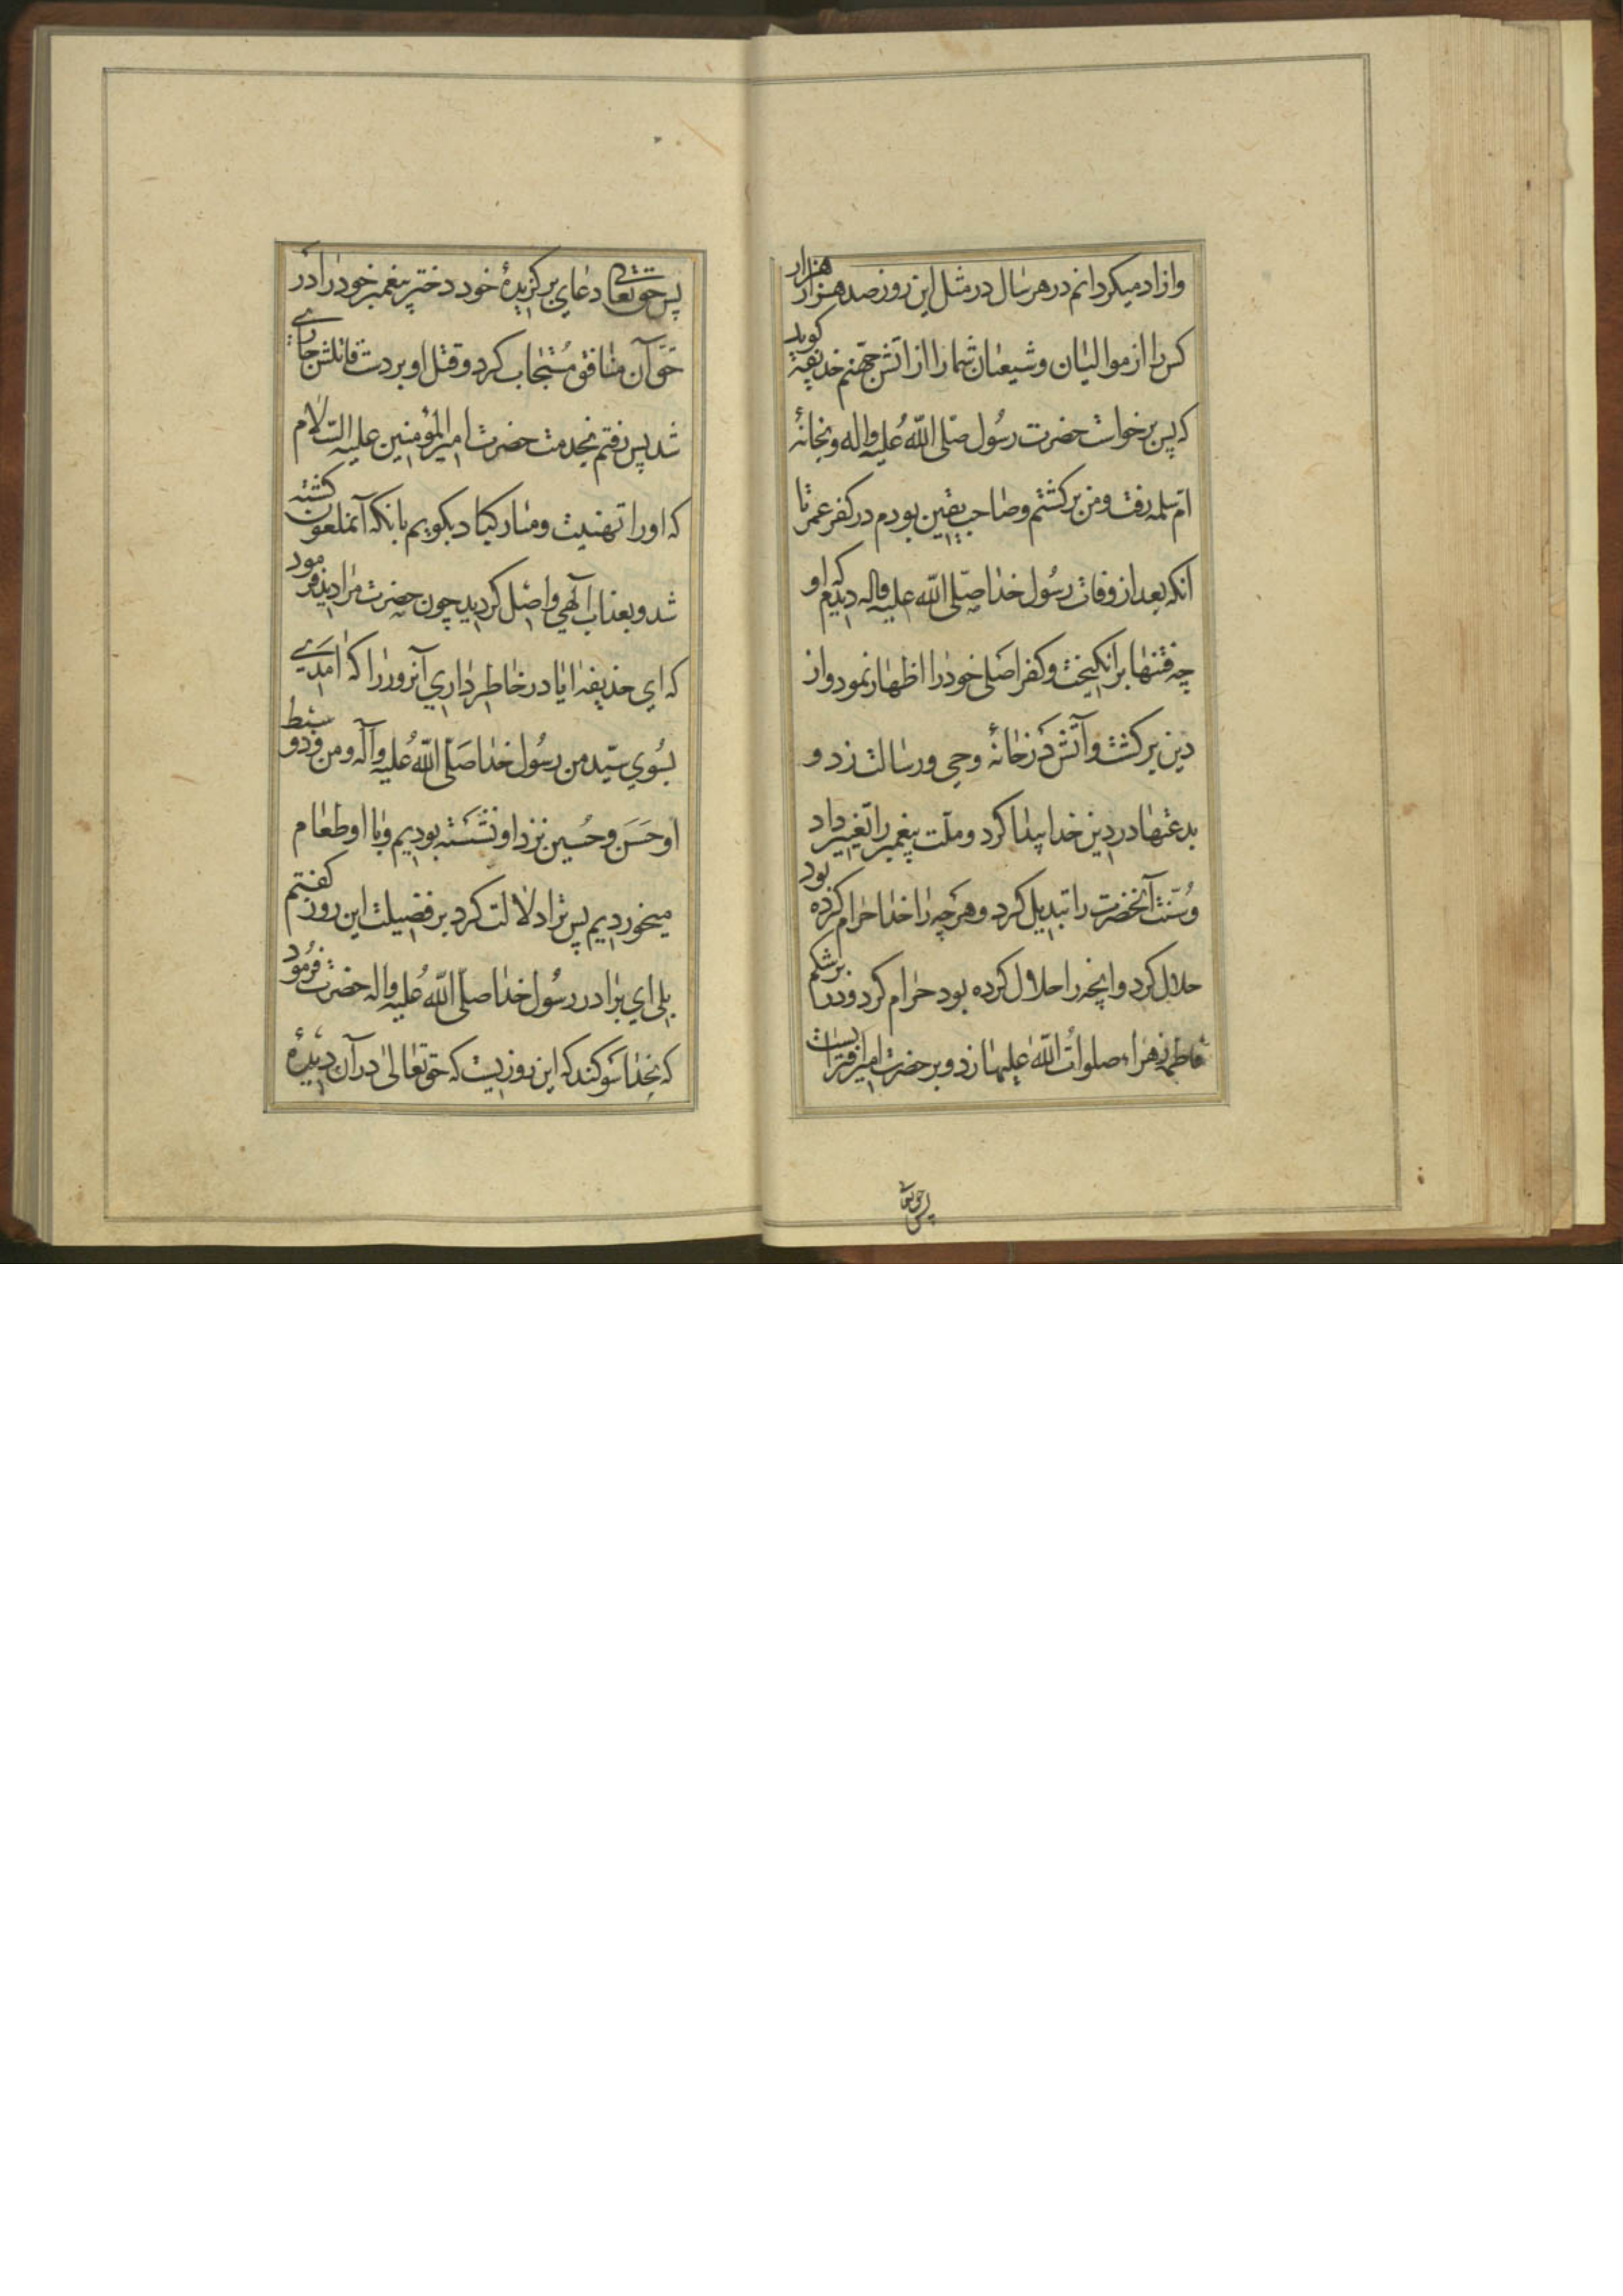 وازاد میکردانم در هر سال در مثل این روز صد هزار هزار
کس را از موالیان و شیعیان شما را از اتش جهنم حذیفه کوید
که پس برخواست حضرت رسول صلی الله علیه واله و بخانهٔ
ام سلمه رفت و من برکشتم و صاحب یقین بودم در کفر عمر تا
انکه بعد از وفات رسول خدا صلی الله علیه واله دیدم که او
چه فتنها برانکیخت و کفر اصلی خود را اظهار نمود و از
دین برکشت و آتش در خانهٔ وحی و رسالت زد و
بدعتها در دین خدا پیدا کرد و ملت پیغمبر را تغییر داد
و سنت آنحضرت را تبدیل کرد و هر چه را خدا حرام کرده بود
حلال کرد و انچه را حلال کرده بود حرام کرد و در را بر شکم
فاطمه زهراء صلوات الله علیها زد و بر حضرت امیر افترا بست
پس حق تعا
پس حق تعالی دعای برکزیدهٔ خود دختر پیغمبر خود را در
حق آن منافق مستجاب کرد و قتل او بر دست قاتلش جاری
شد پس رفتم بخدمت حضرت امیر المؤمنین علیه السلام
که او را تهنیت و مبارکباد بکویم بانکه آنملعون کشته
شد و بعذاب آلهی واصل کردید چون حضرت مرا دید فرمود
که ای حذیفه ایا در خاطر داری آنروز را که امدی
بسوی سید من رسول خدا صلی الله علیه وآله و من و دو سبط
او حسن و حسین نزد او نشسته بودیم و با او طعام
میخوردیم پس ترا دلالت کرد بر فضیلت این روز کفتم
بلی ای برادر رسول خدا صلی الله علیه واله حضرت فرمود
که بخدا سوکند که این روزیست که حق تعالی در آن دیدهٔ